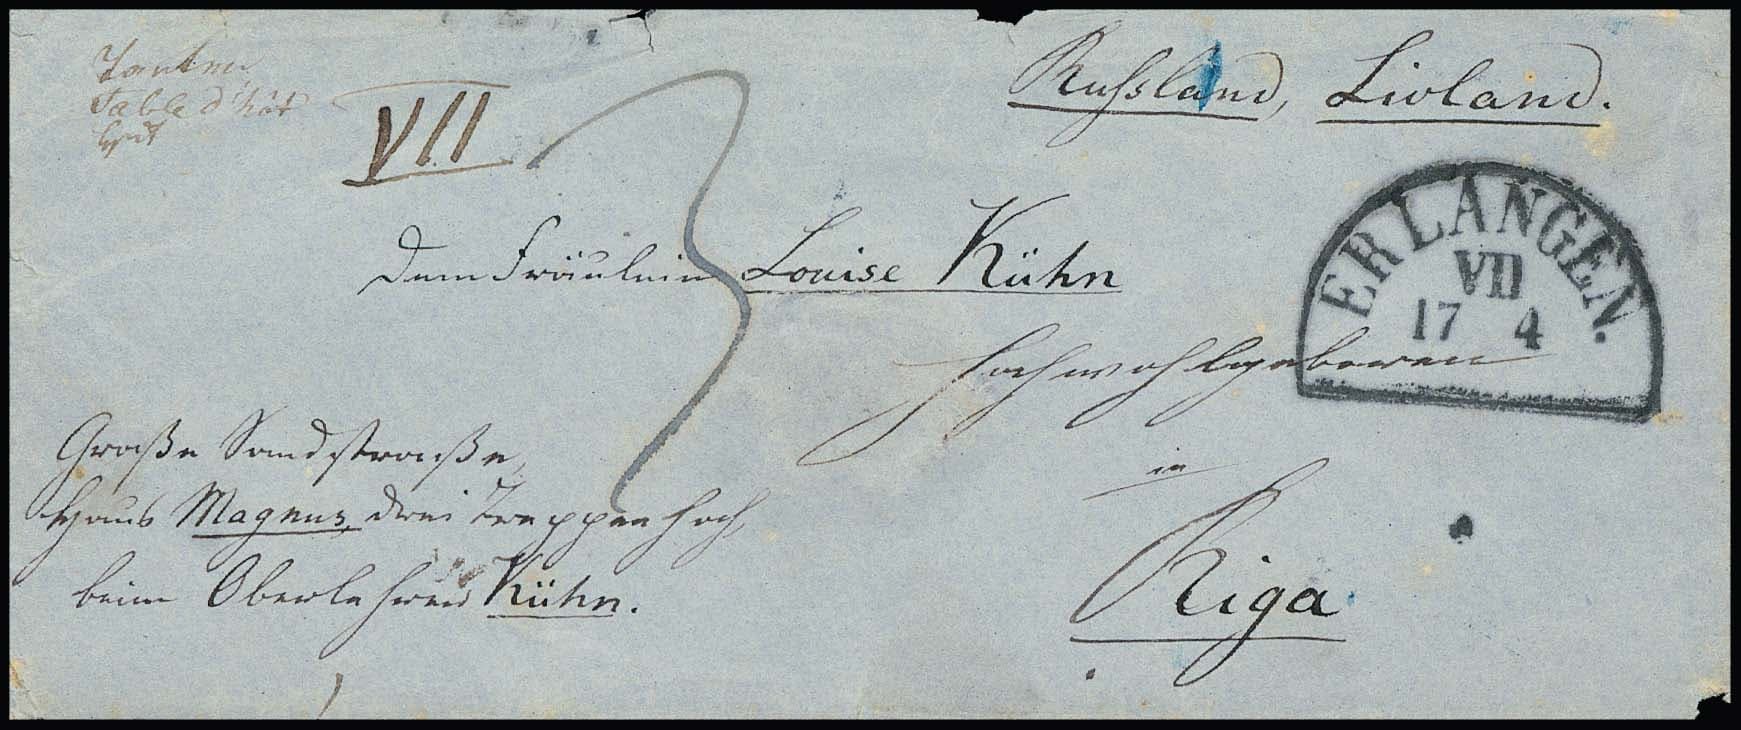 Tanten
Table d'hôt
VII
3
Russland, Livland.
ERLANGEN.
VII
17 4
Dem Fräulein Louise Kühn
Hochwohlgeboren
in
Riga
Große Sandstraße,
Haus Magnus, drei Treppen hoch,
beim Oberlehrer Kühn.